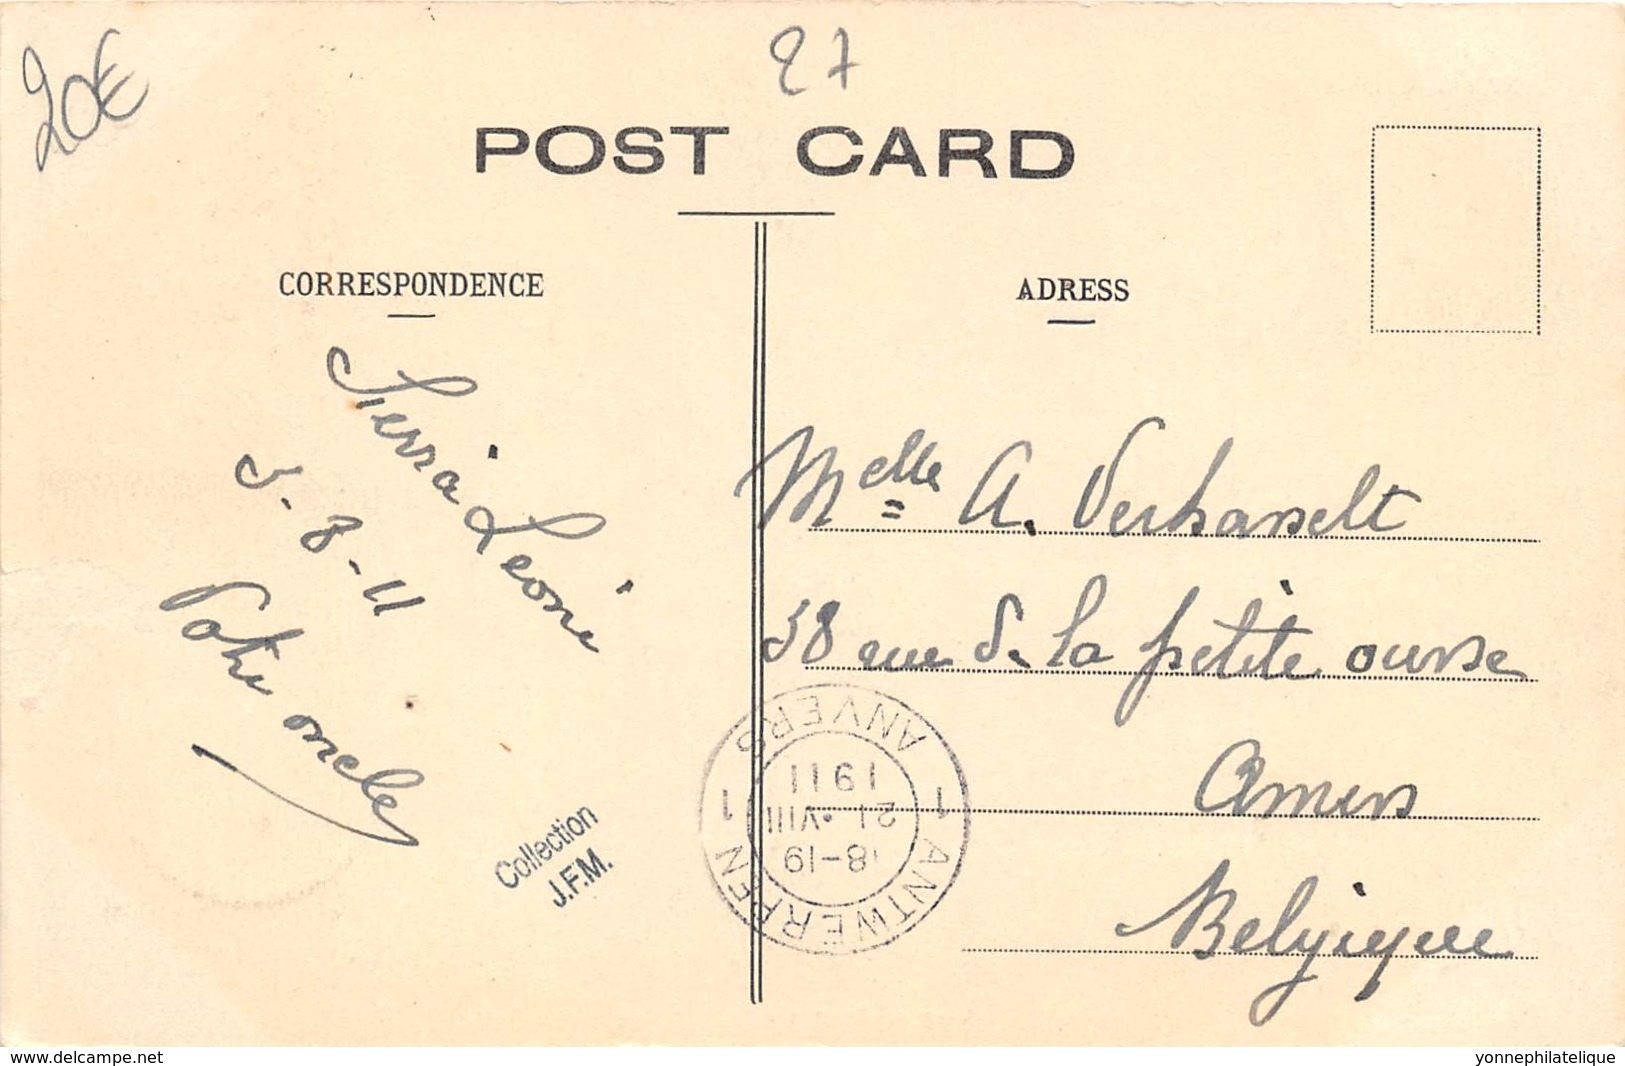 20€
27
POST CARD
CORRESPONDENCE
ADRESS
Sierra Leone
5-8-11
Votre oncle
Melle A. Verhasselt
58 rue de la petite ourse
Anvers
Belgique
ANVERS
1911
1 21.VIII 1
18-19
ANTWERPEN
Collection
J.F.M.
www.delcampe.net
yonnephilatelique